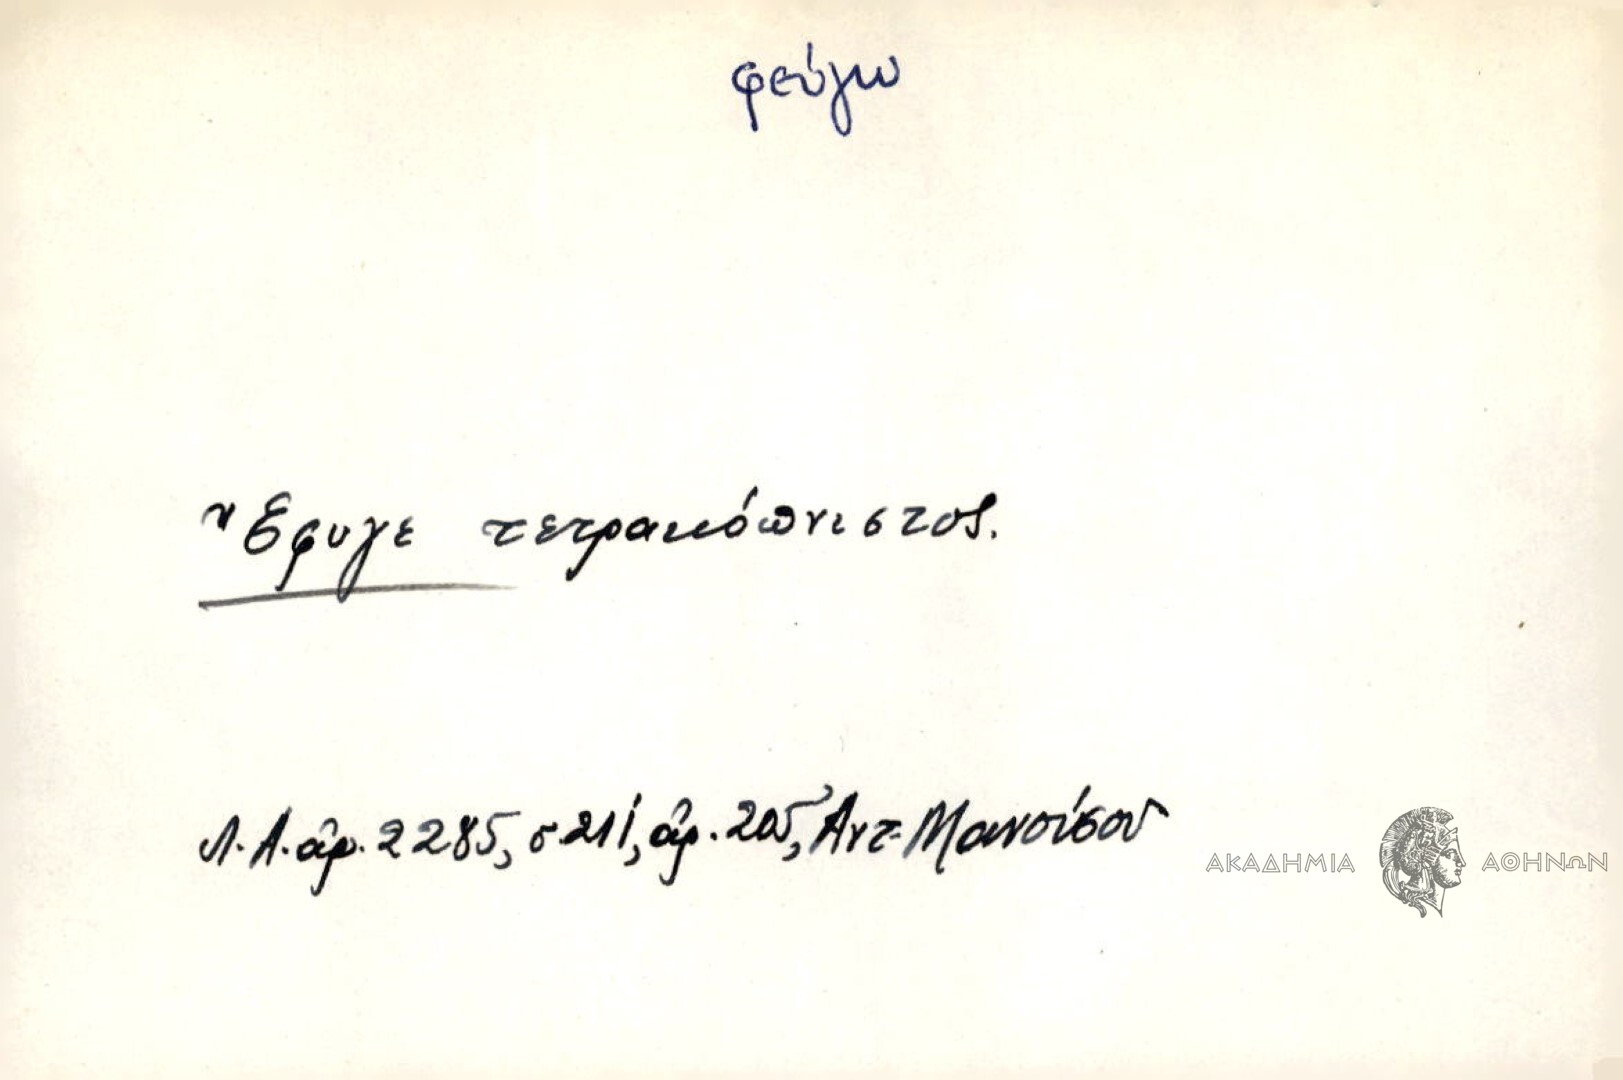 φεύγω
Ἔφυγε τετρακόπνιστος.
Λ.Α. ἀρ. 2285, σ. 211, ἀρ. 205, Ἀντ. Μανούσου
ΑΚΑΔΗΜΙΑ ΑΘΗΝΩΝ